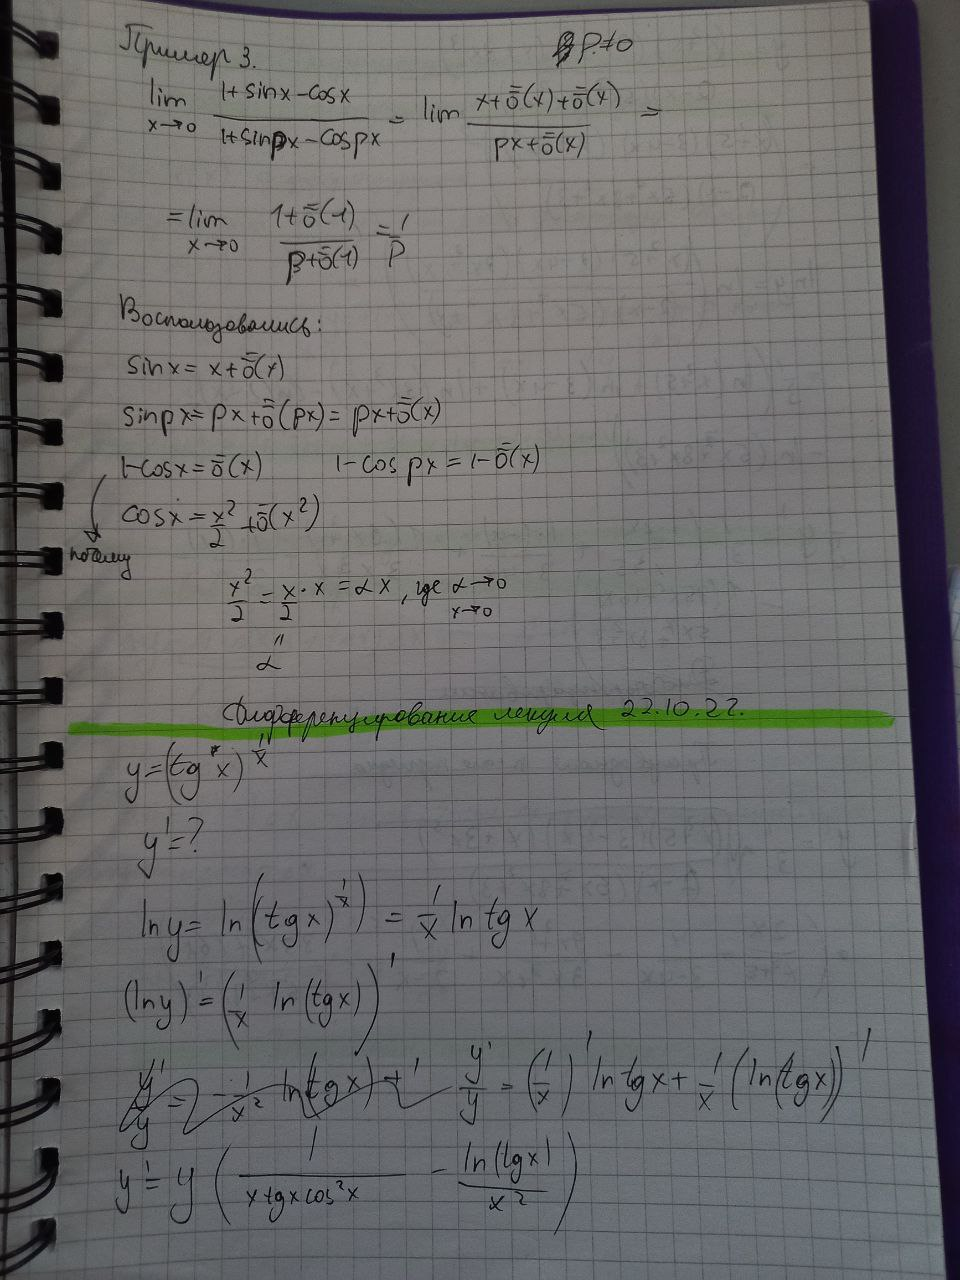 Пример 3. p≠0
lim x→0 (1+sinx-cosx)/(1+sinpx-cospx) = lim (x+ō(x)+ō(x))/(px+ō(x)) =
=lim x→0 (1+ō(1))/(p+ō(1)) = 1/p
Воспользовались:
sinx = x+ō(x)
sinpx = px+ō(px) = px+ō(x)
1-cosx = ō(x) 1-cospx = 1-ō(x)
cosx = x²/2 + ō(x²)
потому
x²/2 = x/2 · x = αx, где α→0 x→0
"
α
Дифференцирование лекция 22.10.22.
y=(tg x)^(1/x)
y'=?
ln y = ln((tgx)^(1/x)) = 1/x ln tgx
(lny)' = (1/x ln(tgx))'
y'/y = (1/x)' ln tgx + 1/x (ln(tgx))'
y' = y (1/(x tgx cos²x) - ln(tgx)/x²)